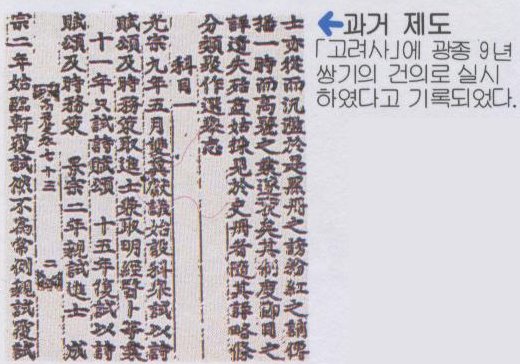 ←과거 제도
「고려사」에 광종 9년
쌍기의 건의로 실시
하였다고 기록되었다.
士亦從而汎濫於是黑冊之謗粉紅之誚傳
播一時而高麗之業遂衰矣其制度節目之
詳遺失殆盡姑採見於史冊者隨其詳略條
分類聚作選擧志
科目一
光宗九年五月雙冀獻議始設科擧試以詩
賦頌及時務策取進士兼取明經醫卜等業
十一年只試詩賦頌 十五年復試以詩
賦頌及時務策 景宗二年親試進士 成
高麗史卷七十三 二
宗二年始臨軒覆試然不爲常例親試覆試